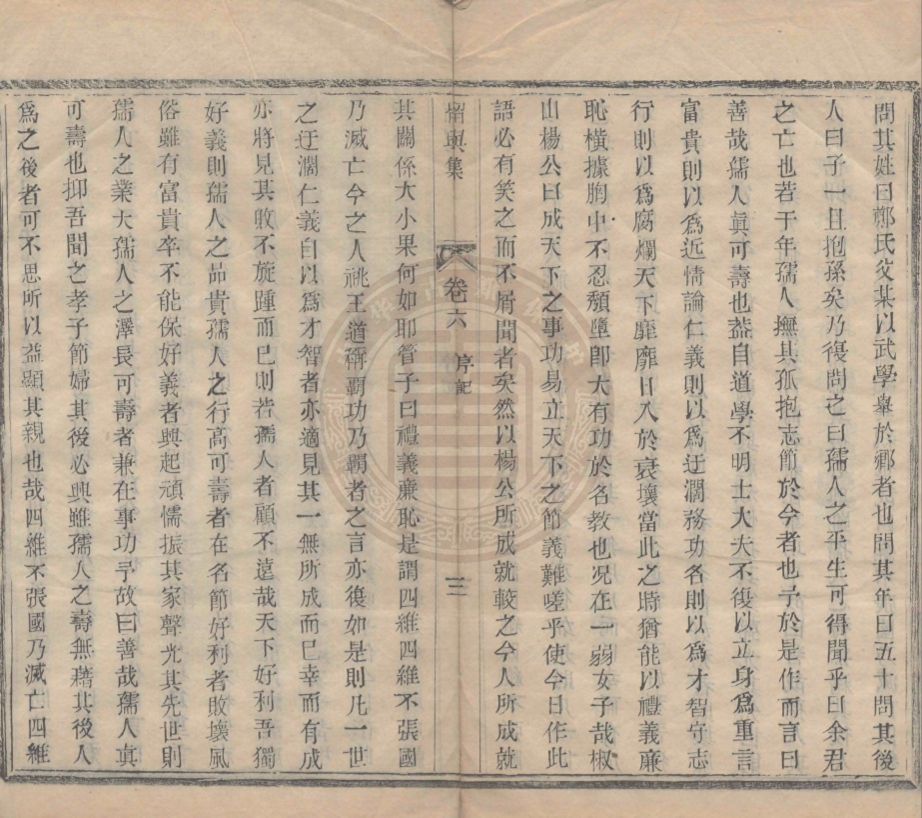 問其姓曰鄭氏父某以武學舉於鄉者也問其年曰五十問其後
人曰子一且抱孫矣乃復問之曰孺人之平生可得聞乎曰余君
之亡也若干年孺人撫其孤抱志節於今者也予於是作而言曰
善哉孺人眞可壽也蓋自道學不明士大夫不復以立身爲重言
富貴則以爲近情論仁義則以爲迂濶務功名則以爲才智守志
行則以爲腐爛天下靡靡日入於衰壞當此之時猶能以禮義廉
恥橫據胸中不忍頹墮卽大有功於名教也况在一弱女子哉椒
山楊公曰成天下之事功易立天下之節義難嗟乎使今日作此
語必有笑之而不屑聞者矣然以楊公所成就較之今人所成就
留輿集 卷六 序記 三
其關係大小果何如耶管子曰禮義廉恥是謂四維四維不張國
乃滅亡今之人祧王道稱覇功乃覇者之言亦復如是則凡一世
之迂濶仁義自以爲才智者亦適見其一無所成而已幸而有成
亦將見其敗不旋踵而已則若孺人者顧不遠哉天下好利吾獨
好義則孺人之品貴孺人之行高可壽者在名節好利者敗壞風
俗雖有富貴卒不能保好義者興起頑懦振其家聲光其先世則
孺人之業大孺人之澤長可壽者兼在事功予故曰善哉孺人眞
可壽也抑吾聞之孝子節婦其後必興雖孺人之壽無藉其後人
爲之後者可不思所以益顯其親也哉四維不張國乃滅亡四維